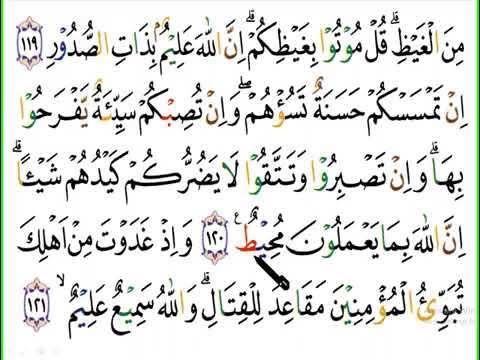 مِنَ الْغَيْظِ ۗ قُلْ مُوْتُوْا بِغَيْظِكُمْ ۗ اِنَّ اللّٰهَ عَلِيْمٌۢ بِذَاتِ الصُّدُوْرِ ۝١١٩
اِنْ تَمْسَسْكُمْ حَسَنَةٌ تَسُؤْهُمْ ۖ وَاِنْ تُصِبْكُمْ سَيِّئَةٌ يَّفْرَحُوْا
بِهَا ۗ وَاِنْ تَصْبِرُوْا وَتَتَّقُوْا لَا يَضُرُّكُمْ كَيْدُهُمْ شَيْـًٔا ۗ
اِنَّ اللّٰهَ بِمَا يَعْمَلُوْنَ مُحِيْطٌ ۝١٢٠ࣖ وَاِذْ غَدَوْتَ مِنْ اَهْلِكَ
تُبَوِّئُ الْمُؤْمِنِيْنَ مَقَاعِدَ لِلْقِتَالِ ۗ وَاللّٰهُ سَمِيْعٌ عَلِيْمٌۙ ۝١٢١